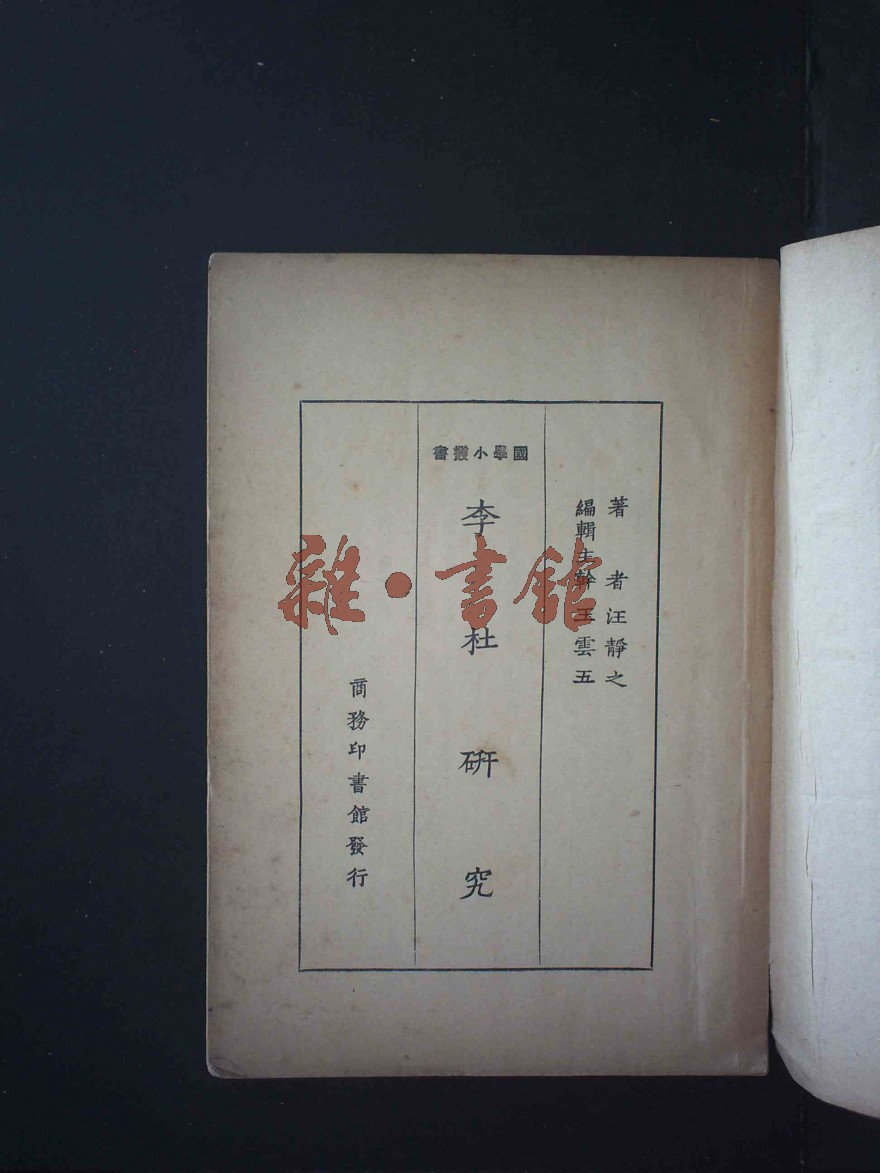 著者汪靜之
編輯主幹王雲五
國學小叢書
李杜研究
商務印書館發行
雜·書館